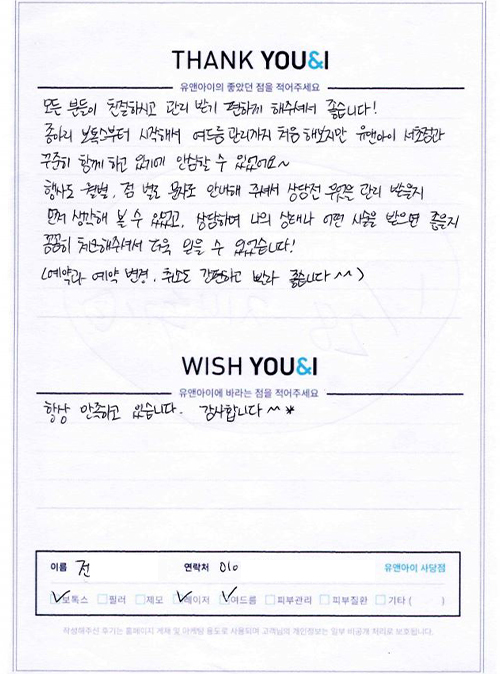 THANK YOU&I
유앤아이의 좋았던 점을 적어주세요
모든 분들이 친절하시고 관리 받기 편하게 해주셔서 좋습니다!
종아리 보톡스부터 시작해서 여드름 관리까지 처음 해보지만 유앤아이 서초점과
꾸준히 함께 하고 있기에 안심할 수 있었어요~
행사도 월별, 점 별로 문자로 안내해 주셔서 상담전 무엇을 관리 받을지
먼저 생각해 볼 수 있었고, 상담하며 나의 상태나 어떤 시술을 받으면 좋을지
꼼꼼히 체크해주셔서 더욱 믿을 수 있었습니다!
(예약과 예약 변경, 취소도 간편하고 빨라 좋습니다 ^^)
WISH YOU&I
유앤아이에 바라는 점을 적어주세요
항상 만족하고 있습니다. 감사합니다 ^^*
이름 전 연락처 010 유앤아이 사당점
보톡스 필러 제모 레이저 여드름 피부관리 피부질환 기타 ( )
작성해주신 후기는 홈페이지 게재 및 마케팅 용도로 사용되며 고객님의 개인정보는 일부 비공개 처리로 보호됩니다.